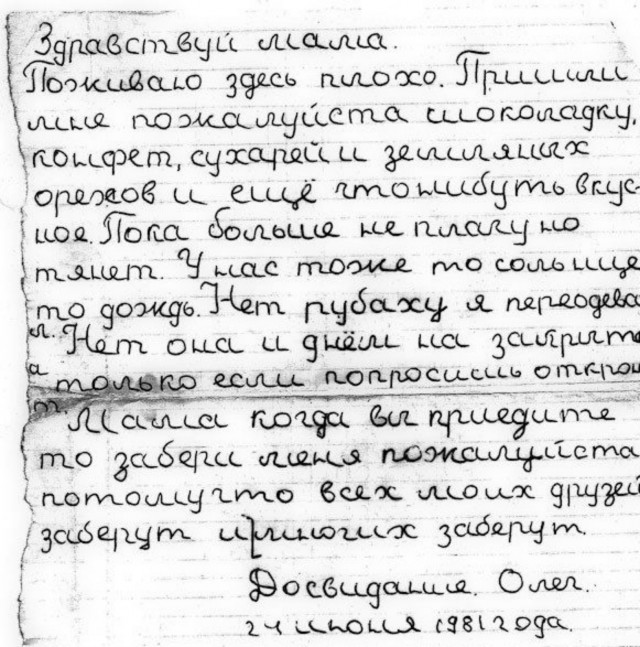 Здравствуй мама.
Поживаю здесь плохо. Пришли
мне пожалуйста шоколадку,
конфет, сухарей и земляных
орехов и ещё чтонибуть вкус-
ное. Пока больше не плачу но
тянет. У нас тоже то солнце
то дождь. Нет рубаху я переодева
л. Нет она и днём на закрыта
а только если попросишь открою
т. Мама когда вы приедите
то забери меня пожалуйста
потомучто всех моих друзей
заберут и многих заберут.
Досвидания. Олег.
24 июня 1981 года.